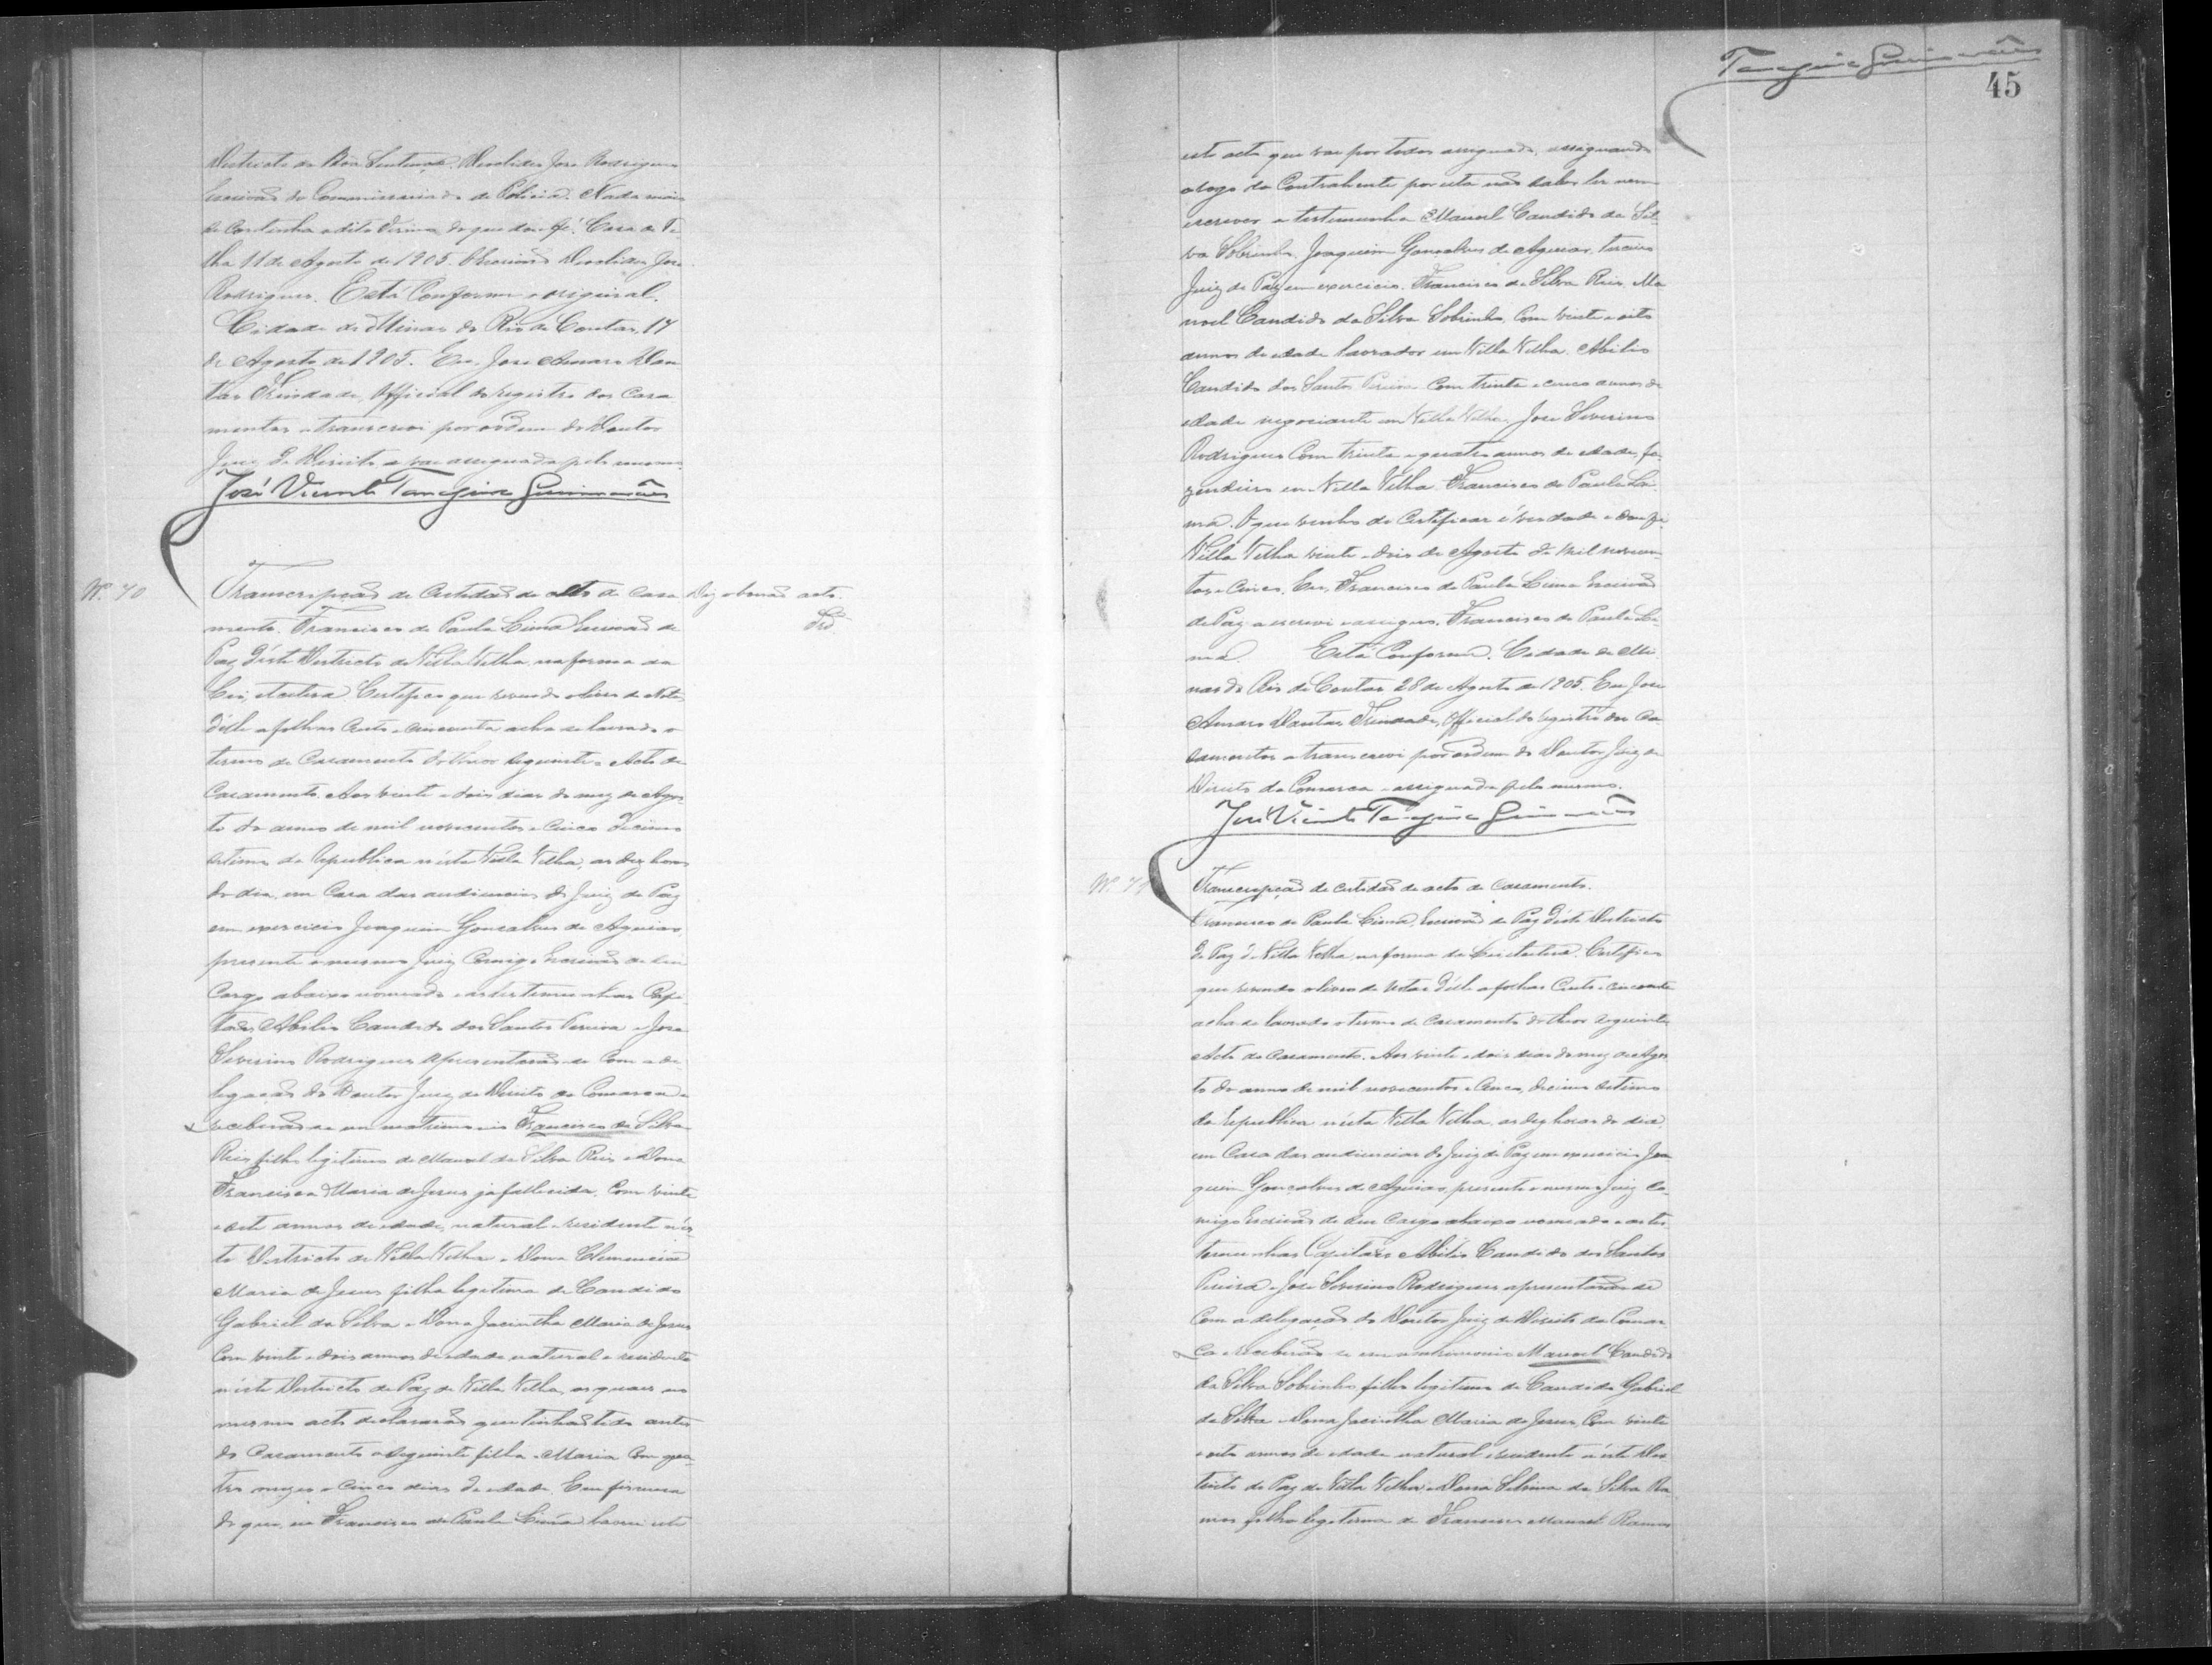 Districto da Bôa Sentença. Deoclides José Rodrigues
Escrivão do Commissariado de Policia. Nada mais
se continha o dito termo do que dou fé. Casa de Te-
lha 11 de Agosto de 1905. O Escrivão Deoclides José
Rodrigues. Está Conforme o original.
Cidade de Minas do Rio de Contas, 17
de Agosto de 1905. Eu, José Amaro Dan
tas Trindade, Official do registro dos Casa
mentos o transcrevi por ordem do Doutor
Juiz de Direito e vae assignado pelo mesmo
José Vicente Tanajura Guimarães
Nº 70
Transcripção de Certidão de acto de Casa
mento. Francisco de Paula Lima Escrivão de
Paz d'éste Districto de Villa Velha, na forma da
Lei, etcetera. Certifico que revendo o livro de Notas
d'elle a folhas Cento e cincoenta acha se lavrado o
termo de Casamento do theor seguinte: Acto de
Casamento. Aos vinte e dois dias do mez de Agos
to do anno de mil novecentos e Cinco decimo
setimo da Republica n'ésta Villa Velha, as dez horas
do dia, em Casa das audiencias do Juiz de Paz
em exercicio Joaquim Gonsalves de Aguiar,
presente o mesmo Juiz Comigo Escrivão de seu
Cargo abaixo nomeado e as testemunhas Capi
tães Abilio Candido dos Santos Pereira e José
Severino Rodrigues apresentarão-se Com a de
legação do Doutor Juiz de Direito da Comarca e
receberão se em matrimonio Francisco da Silva
Reis filho legitimo de Manoel da Silva Reis e Dona
Francisca Maria de Jesus já fallecida, Com vinte
e sete annos de edade, natural e residente n'és
te Districto de Villa Velha e Dona Clemencia
Maria de Jesus filha legitima de Candido
Gabriel da Silva e Dona Jacintha Maria de Jesus
Com vinte e dois annos de edade natural e residente
n'éste Districto de Paz de Villa Velha, os quaes no
mesmo acto declararão que tinhão tido antes
do Casamento a seguinte filha: Maria Com qua
tro mezes e Cinco dias de edade. Em firmesa
do que, eu Francisco de Paula Lima lavrei este
Diz abonar acto.
45
este acto que vae por todos assignado, assignando
a rogo da Contrahente por esta não saber ler nem
escrever a testemunha Manoel Candido da Sil-
va Sobrinho. Joaquim Gonsalves de Aguiar, terceiro
Juiz de Paz em exercicio. Francisco da Silva Reis. Ma
noel Candido da Silva Sobrinho, Com vinte e oito
annos de edade lavrador em Villa Velha. Abilio
Candido dos Santos Pereira Com trinta e cinco annos de
edade negociante em Villa Velha, José Severino
Rodrigues Com trinta e quatro annos de edade, fa-
zendeiro em Villa Velha. Francisco de Paula Li-
ma. O que venho de Certificar é verdade e dou fé.
Villa Velha vinte e dois de Agosto de mil novecen
tos e Cinco. Eu, Francisco de Paula Lima Escrivão
de Paz o escrevi e assigno. Francisco de Paula Li-
ma. Está Conforme. Cidade de Mi
nas do Rio de Contas 28 de Agosto de 1905. Eu José
Amaro Dantas Trindade, Official do registro dos Ca
samentos o transcrevi por ordem do Doutor Juiz de
Direito da Comarca e assignado pelo mesmo.
José Vicente Tanajura Guimarães
Nº 71
Transcripção de certidão de acto de casamento.
Francisco de Paula Lima, Escrivão de Paz d'éste Districto
de Paz de Villa Velha, na forma da Lei etcetera. Certifico
que revendo o livro de notas d'elle a folhas Cento e cincoenta
acha se lavrado o termo de casamento do theor seguinte
Acto de casamento. Aos vinte e dois dias do mez de Agos
to do anno de mil novecentos e Cinco, decimo setimo
da Republica n'ésta Villa Velha, as dez horas do dia
em Casa das audiencias do Juiz de Paz em exercicio Joa
quim Gonçalves de Aguiar, presente o mesmo Juiz Co-
migo Escrivão de seu Cargo abaixo nomeado e as tes
temunhas Capitães Abilio Candido dos Santos
Pereira e José Severino Rodrigues apresentarão se
Com a delegação do Doutor Juiz de Direito da Comar
ca e receberão se em matrimonio Manoel Candido
da Silva Sobrinho filho legitimo de Candido Gabriel
da Silva e Dona Jacintha Maria de Jesus, Com vinte
e oito annos de edade natural e residente n'éste Dis
tricto de Paz de Villa Velha e Dona da Silva Ra
mos filha legitima de Francisco Manoel Ramos